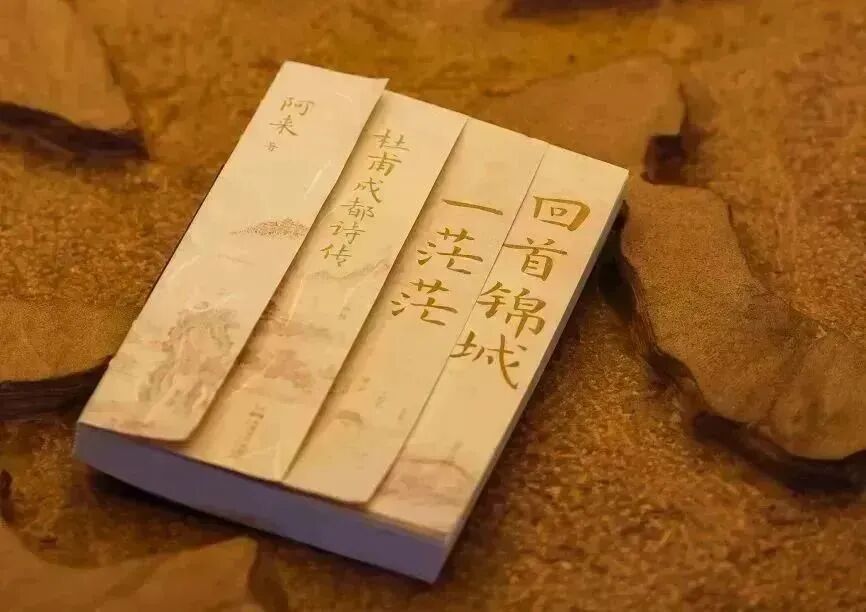 回首锦城
一茫茫
杜甫成都诗传
阿来 著